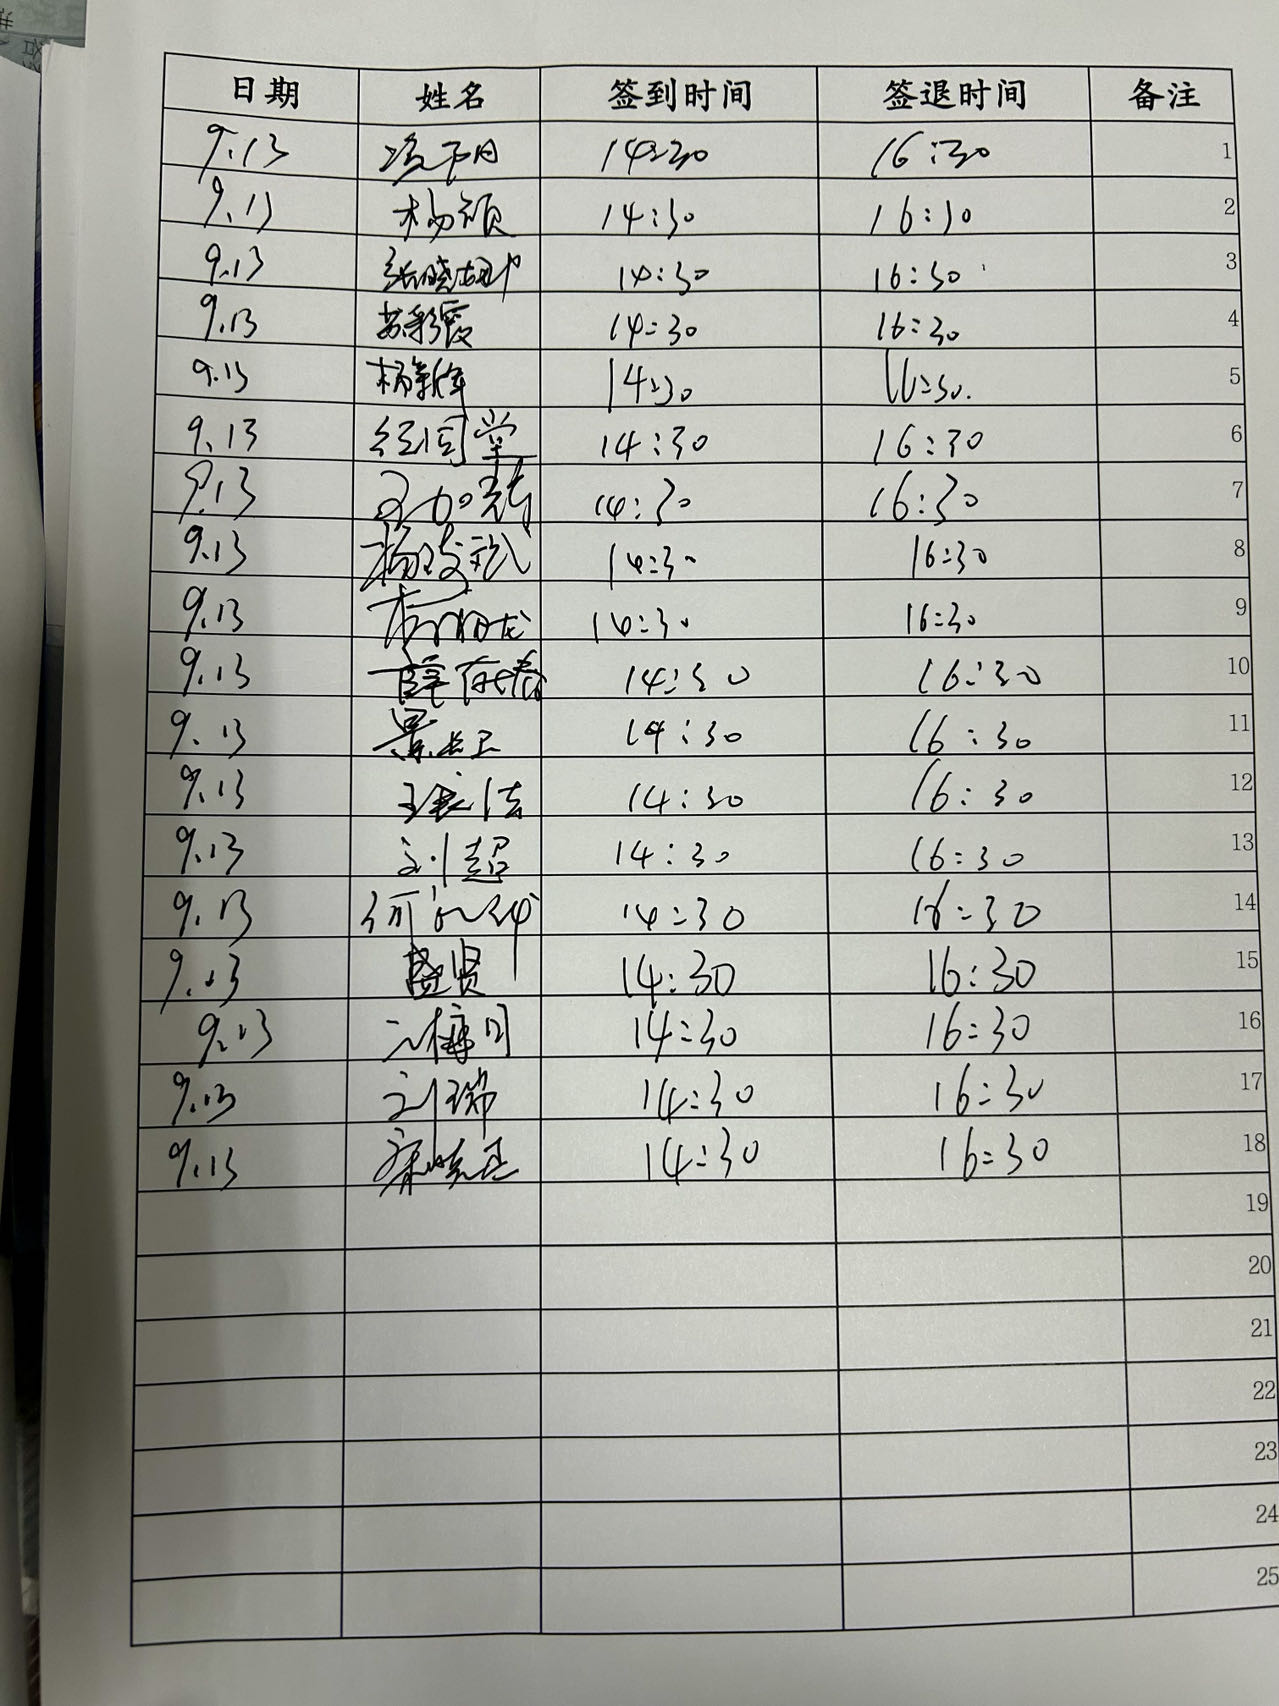 日期 姓名 签到时间 签退时间 备注
9.13 14:30 16:30 1
9.13 杨颖 14:30 16:30 2
9.13 14:30 16:30 3
9.13 苏彩霞 14:30 16:30 4
9.13 14:30 16:30 5
9.13 14:30 16:30 6
9.13 14:30 16:30 7
9.13 14:30 16:30 8
9.13 14:30 16:30 9
9.13 14:30 16:30 10
9.13 14:30 16:30 11
9.13 14:30 16:30 12
9.13 刘超 14:30 16:30 13
9.13 14:30 16:30 14
9.13 盛贤 14:30 16:30 15
9.13 14:30 16:30 16
9.13 刘瑞 14:30 16:30 17
9.13 14:30 16:30 18
19
20
21
22
23
24
25